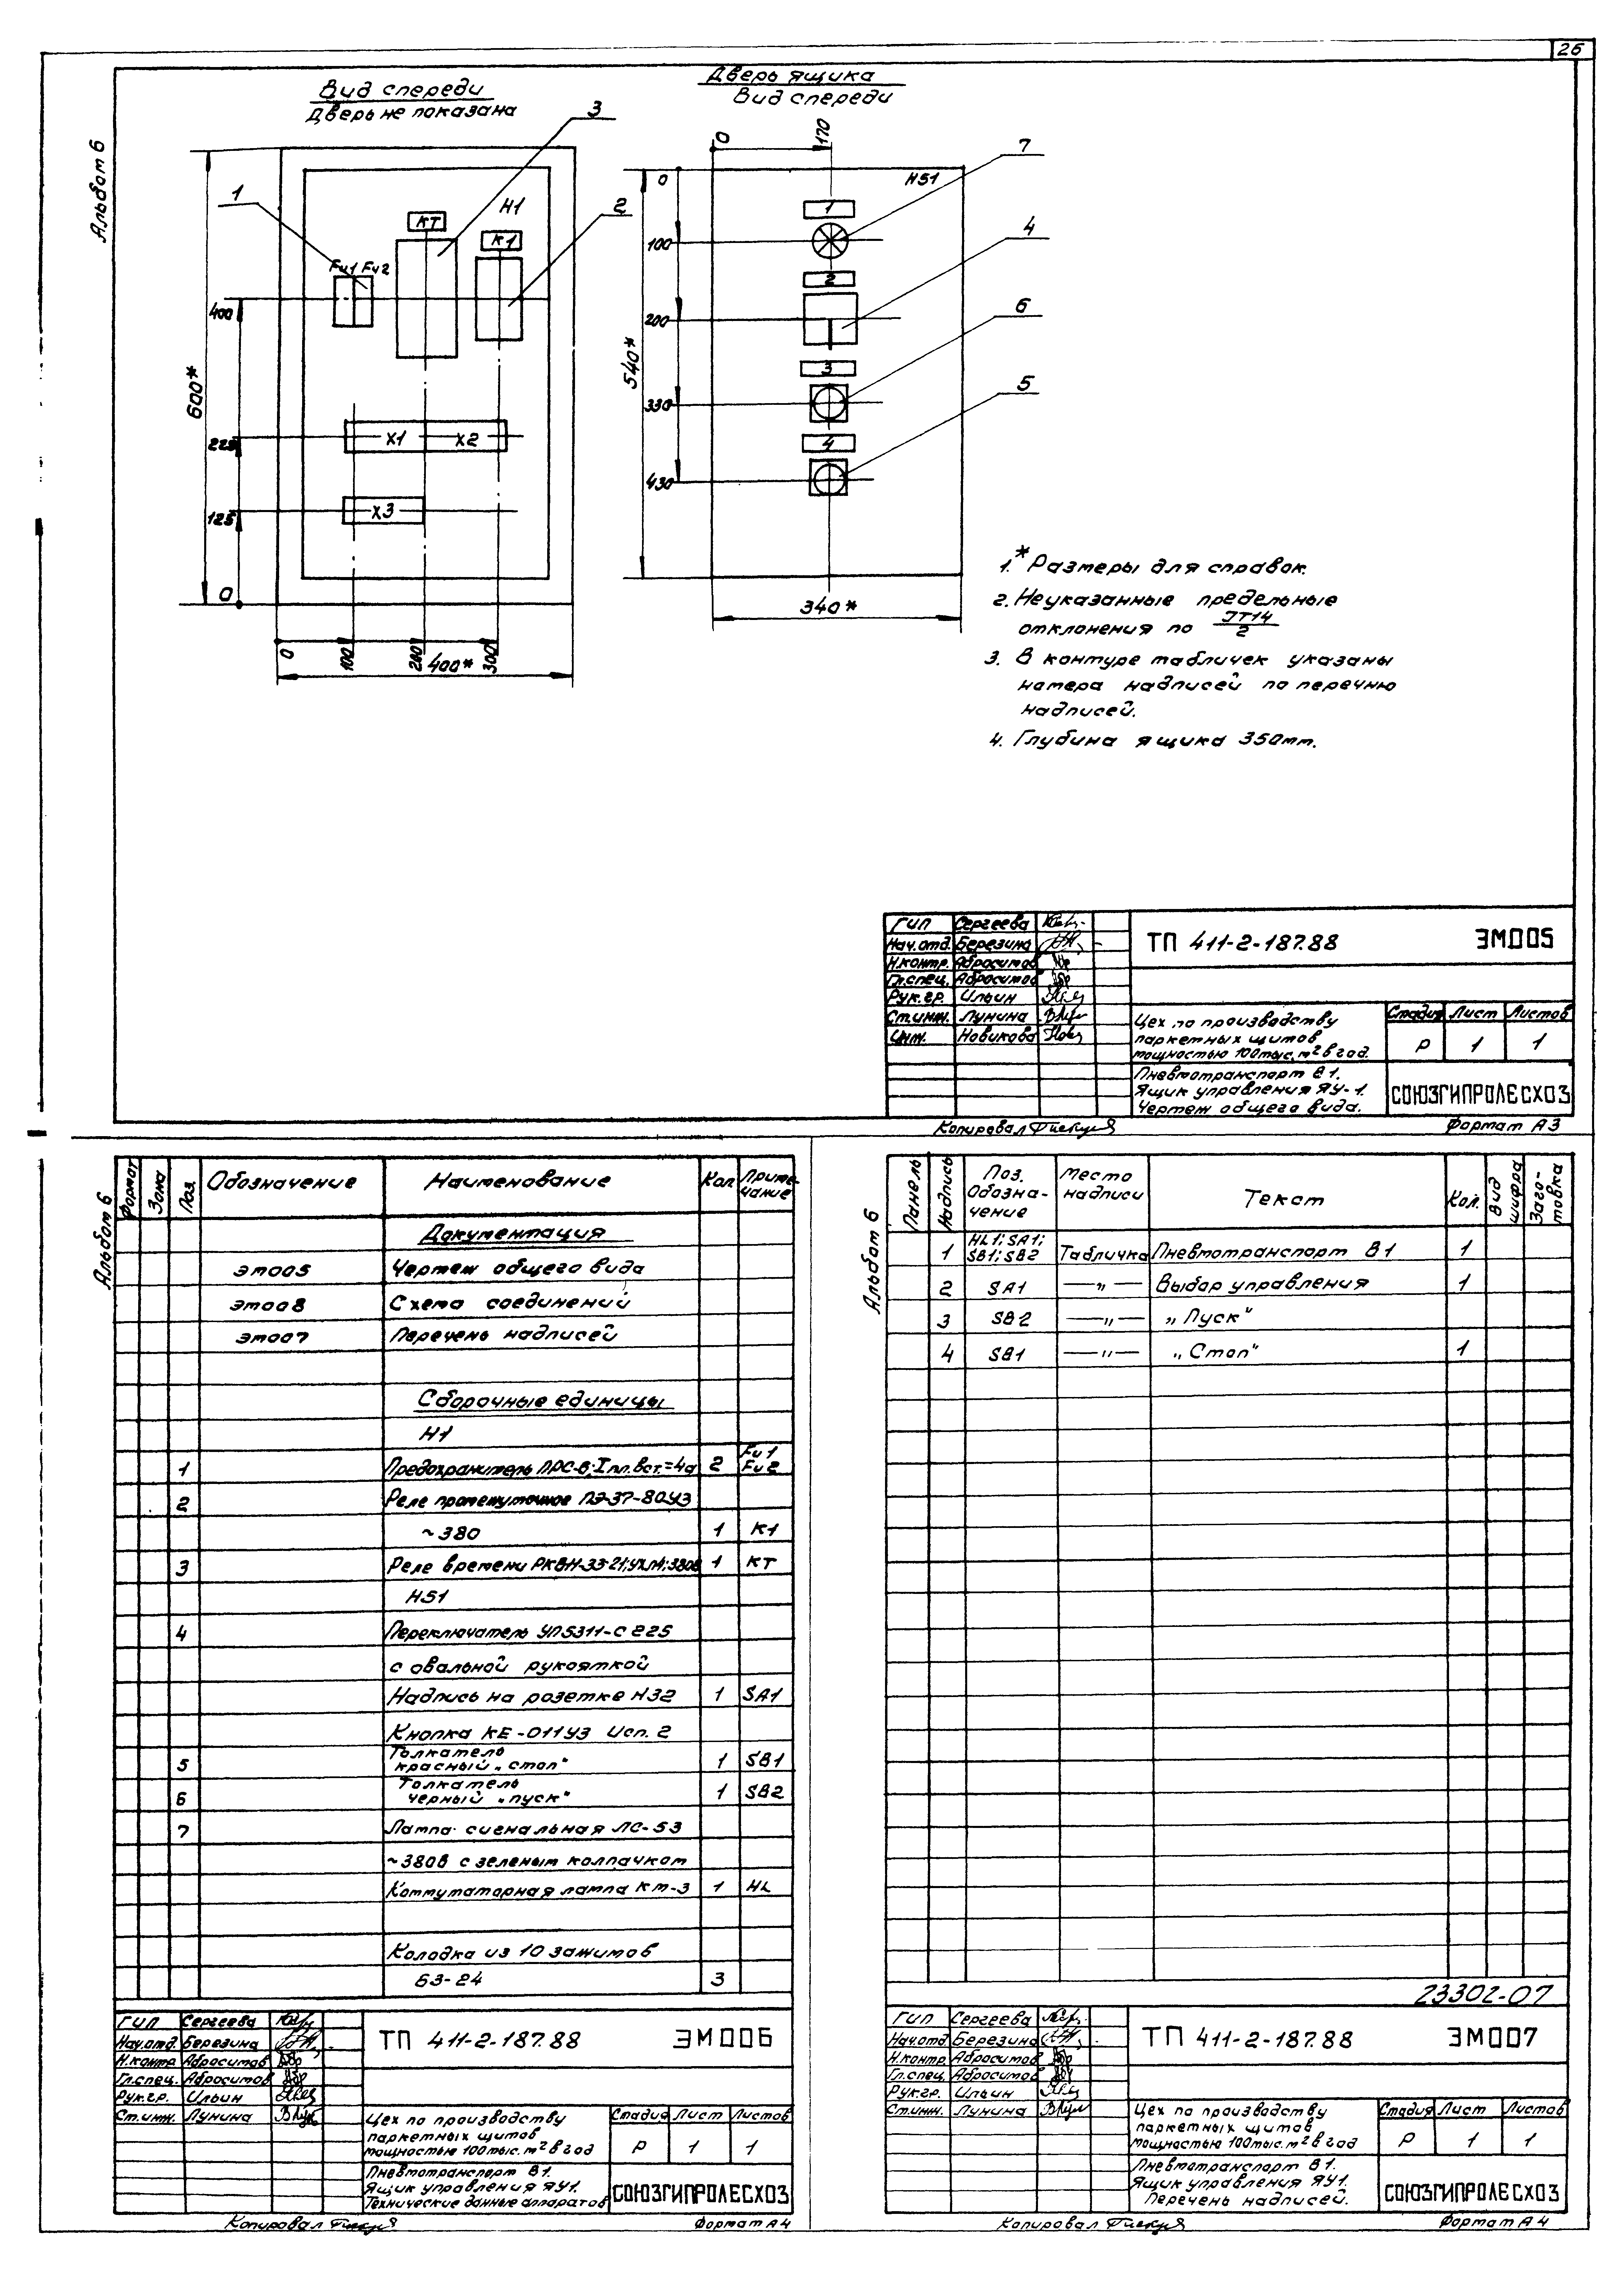 26
Альбом 6
Вид спереди
Дверь не показана
Дверь ящика
Вид спереди
1
3
2
КТ
Н1
К1
Fu1 Fu2
400
600*
225
Х1
Х2
125
Х3
0
0
100
200
300
400*
0
170
Н51
0
100
200
330
430
540*
340*
1
2
3
4
7
4
6
5
1.* Размеры для справок.
2. Неуказанные предельные
отклонения по JT14/2
3. В контуре табличек указаны
номера надписей по перечню
надписей.
4. Глубина ящика 350мм.
ГИП Сергеева
Нач.отд. Березина
Н.контр. Абросимов
Гл.спец. Абросимов
Рук.гр. Ильин
Ст.инж. Лунина
Инж. Новикова
ТП 411-2-187.88 ЭМ005
Цех по производству
паркетных щитов
мощностью 100тыс.м² в год.
Стадия Лист Листов
Р 1 1
Пневмотранспорт В1.
Ящик управления ЯУ-1.
Чертеж общего вида.
СОЮЗГИПРОЛЕСХОЗ
Копировал
Формат А3
Альбом 6
Формат Зона Поз. Обозначение Наименование Кол Приме-
чание
Документация
ЭМ005 Чертеж общего вида
ЭМ008 Схема соединений
ЭМ007 Перечень надписей
Сборочные единицы
Н1
1 Предохранитель ПРС-6; Iпл.вст.=4а 2 Fu1
Fu2
2 Реле промежуточное ПЭ-37-80У3
~380 1 К1
3 Реле времени РКВН-33-21;УХЛ4;380В 1 КТ
Н51
4 Переключатель УП5311-С225
с овальной рукояткой
Надпись на розетке Н32 1 SA1
Кнопка КЕ-011У3 Исп. 2
Толкатель
5 красный „стоп" 1 SB1
Толкатель
6 черный „пуск" 1 SB2
7 Лампа сигнальная ЛС-53
~380в с зеленым колпачком
Коммутаторная лампа КМ-3 1 HL
Колодка из 10 зажимов
БЗ-24 3
ГИП Сергеева
Нач.отд. Березина
Н.контр Абросимов
Гл.спец. Абросимов
Рук.гр. Ильин
Ст.инж. Лунина
ТП 411-2-187.88 ЭМ006
Цех по производству
паркетных щитов
мощностью 100тыс.м² в год
Стадия Лист Листов
Р 1 1
Пневмотранспорт В1.
Ящик управления ЯУ1.
Технические данные аппаратов
СОЮЗГИПРОЛЕСХОЗ
Копировал
Формат А4
Альбом 6
Панель Надпись Поз. Обозна-
чение Место
надписи Текст Кол. Вид
шифра Заго-
товка
HL1; SA1;
1 SB1; SB2 Табличка Пневмотранспорт В1 1
2 SA1 —„— Выбор управления 1
3 SB2 —„— „Пуск"
4 SB1 —„— „Стоп" 1
23302-07
ГИП Сергеева
Нач.отд Березина
Н.контр. Абросимов
Гл.спец. Абросимов
Рук.гр. Ильин
Ст.инж. Лунина
ТП 411-2-187.88 ЭМ007
Цех по производству
паркетных щитов
мощностью 100тыс.м² в год
Стадия Лист Листов
Р 1 1
Пневмотранспорт В1.
Ящик управления ЯУ1.
Перечень надписей.
СОЮЗГИПРОЛЕСХОЗ
Копировал
Формат А4